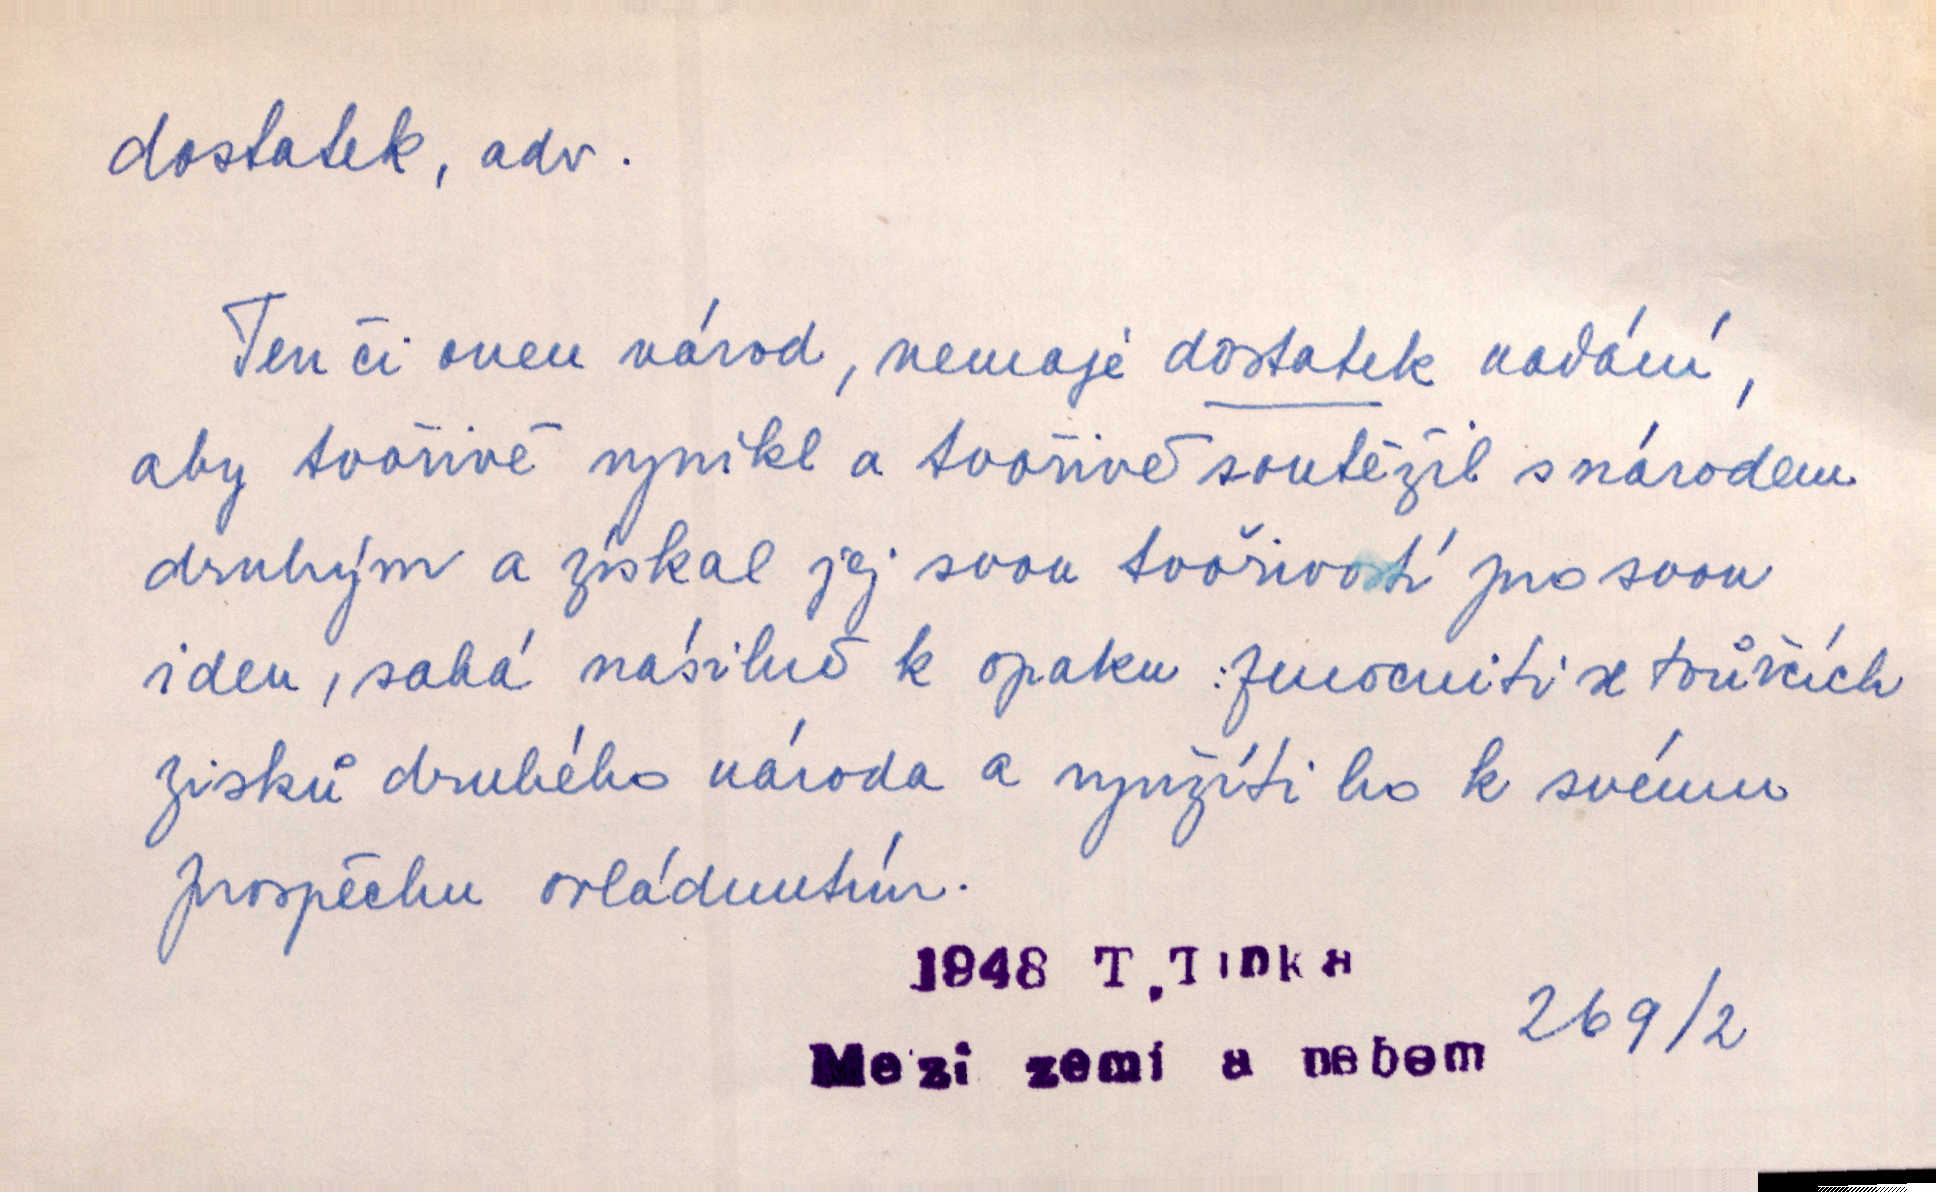 dostatek, adv.
Ten či onen národ, nemaje dostatek nadání,
aby tvořivě vynikl a tvořivě soutěžil s národem
druhým a získal jej svou tvořivostí pro svou
ideu, sahá násilně k opaku: zmocniti se tvůrčích
zisků druhého národa a využíti ho k svému
prospěchu ovládnutím.
1948 T. Tinka
Mezi zemí a nebem 269/2